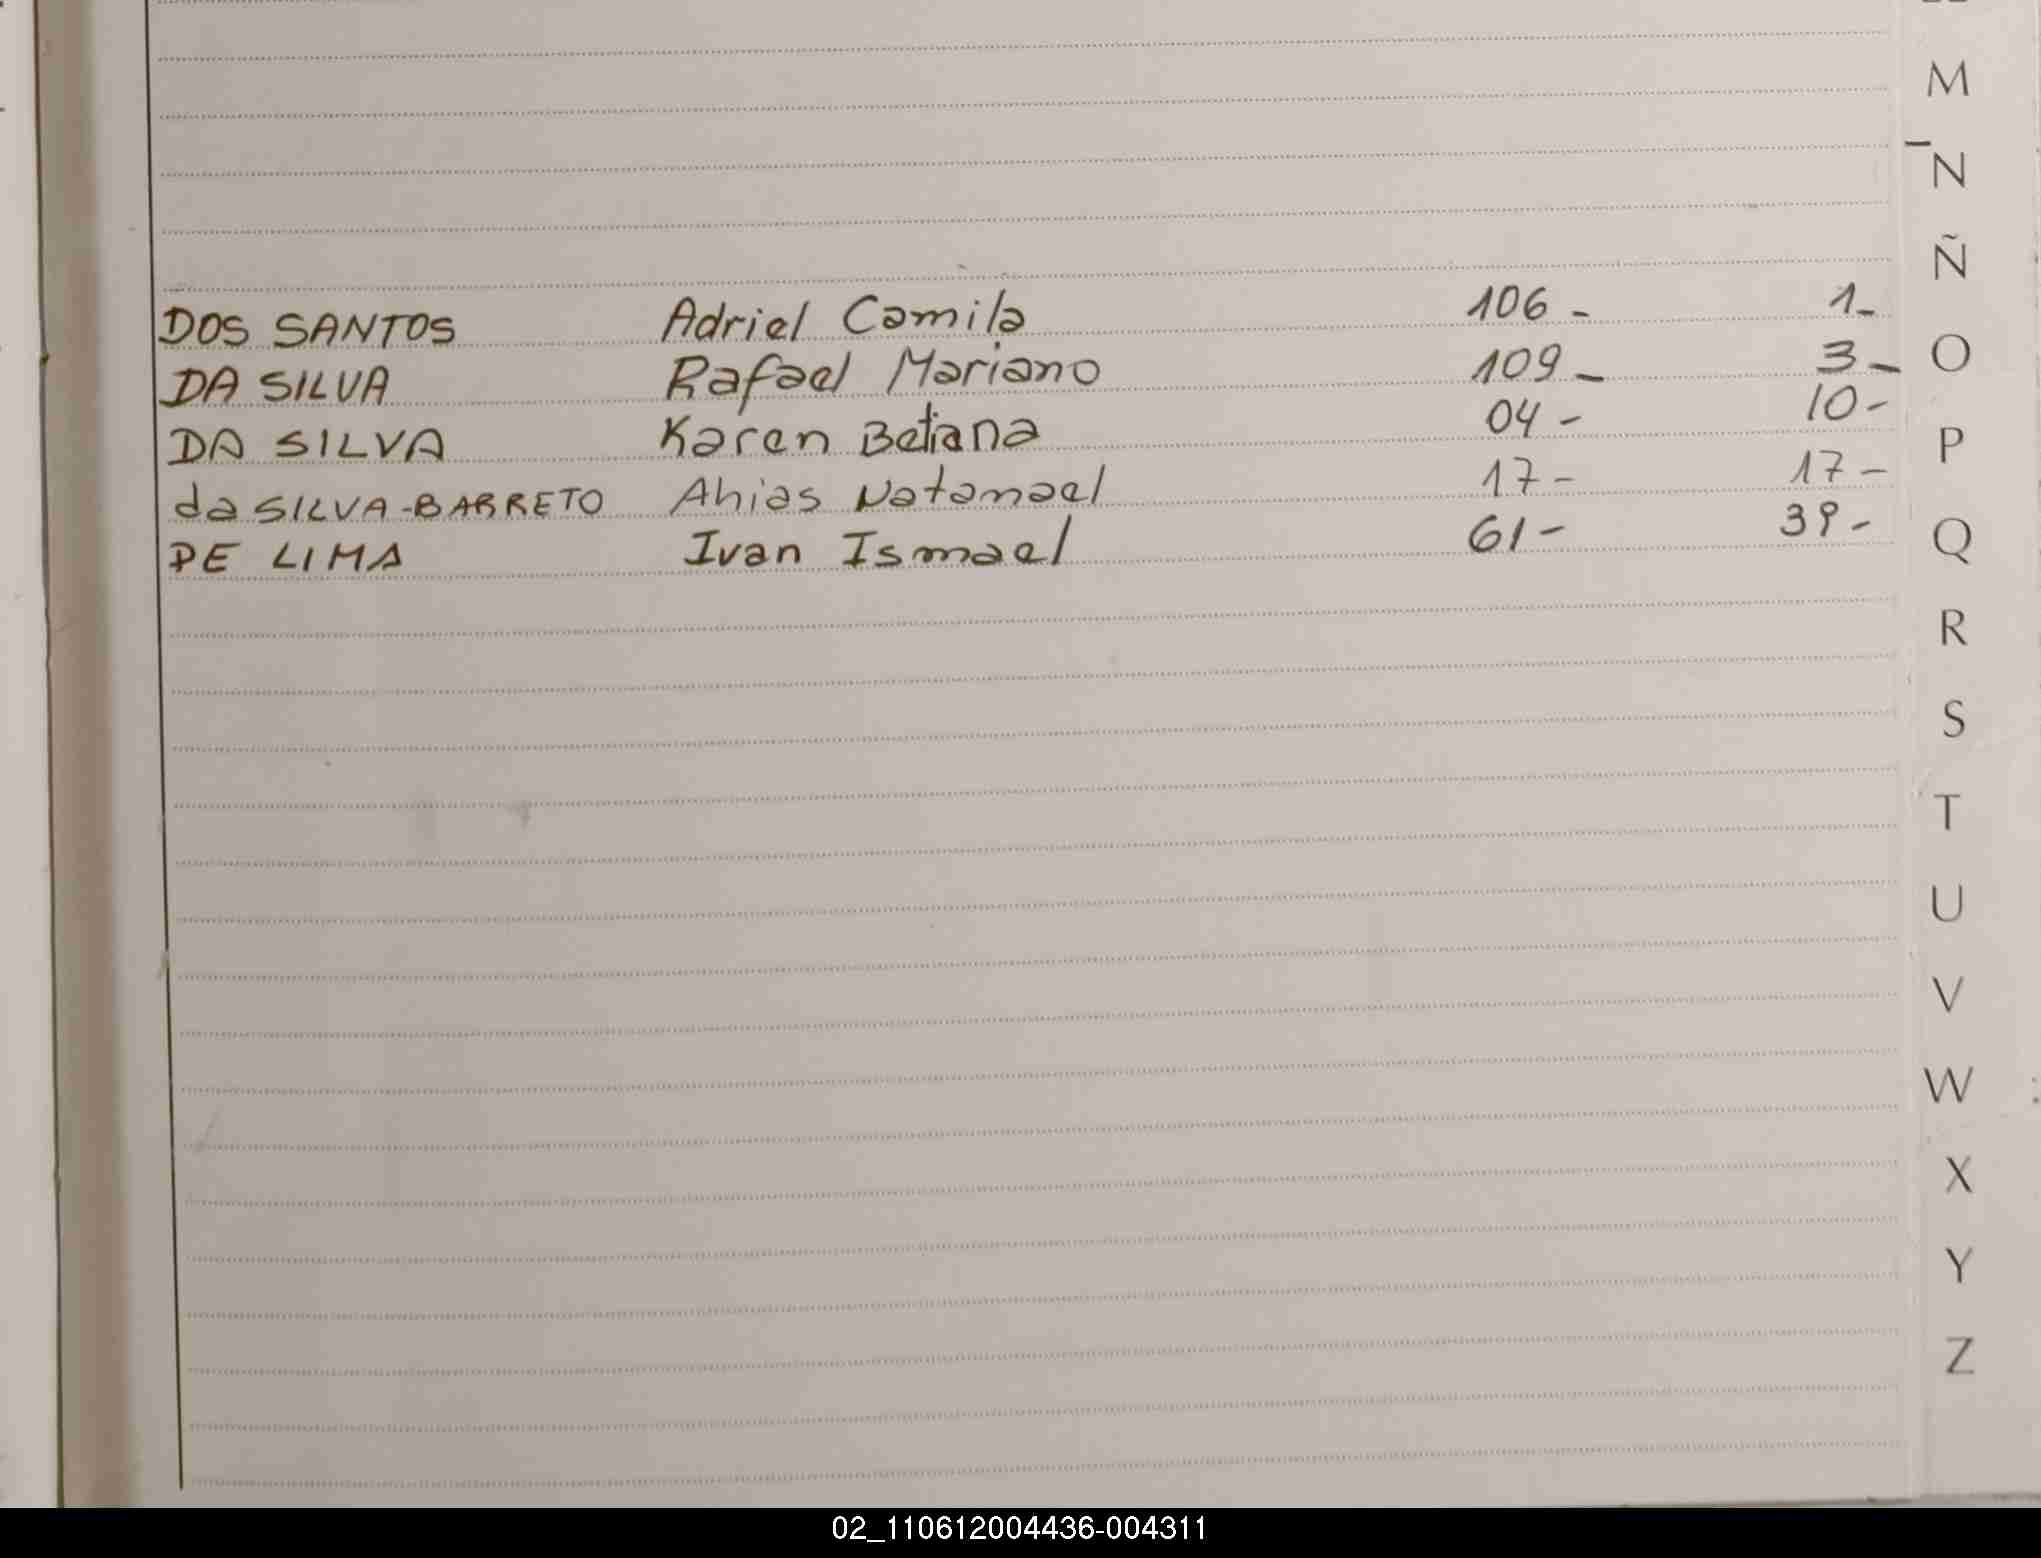 M
N
Ñ
DOS SANTOS Adriel Camila 106- 1-
O
DA SILVA Rafael Mariano 109- 3-
DA SILVA Karen Betiana 04- 10-
P
da SILVA-BARRETO Ahias Natanael 17- 17-
DE LIMA Ivan Ismael 61- 39-
Q
R
S
T
U
V
W
X
Y
Z
02_110612004436-004311